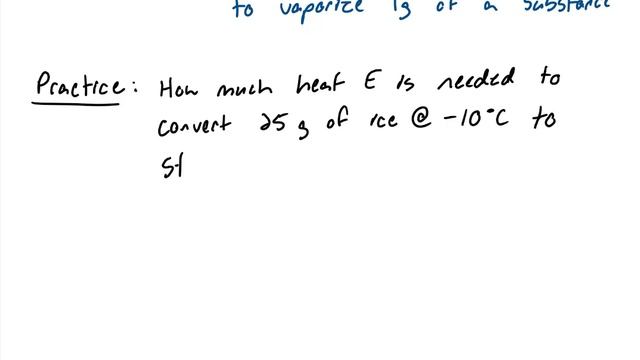 to vaporize 1g of a substance
Practice: How much heat E is needed to
convert 25 g of ice @ -10°C to
st